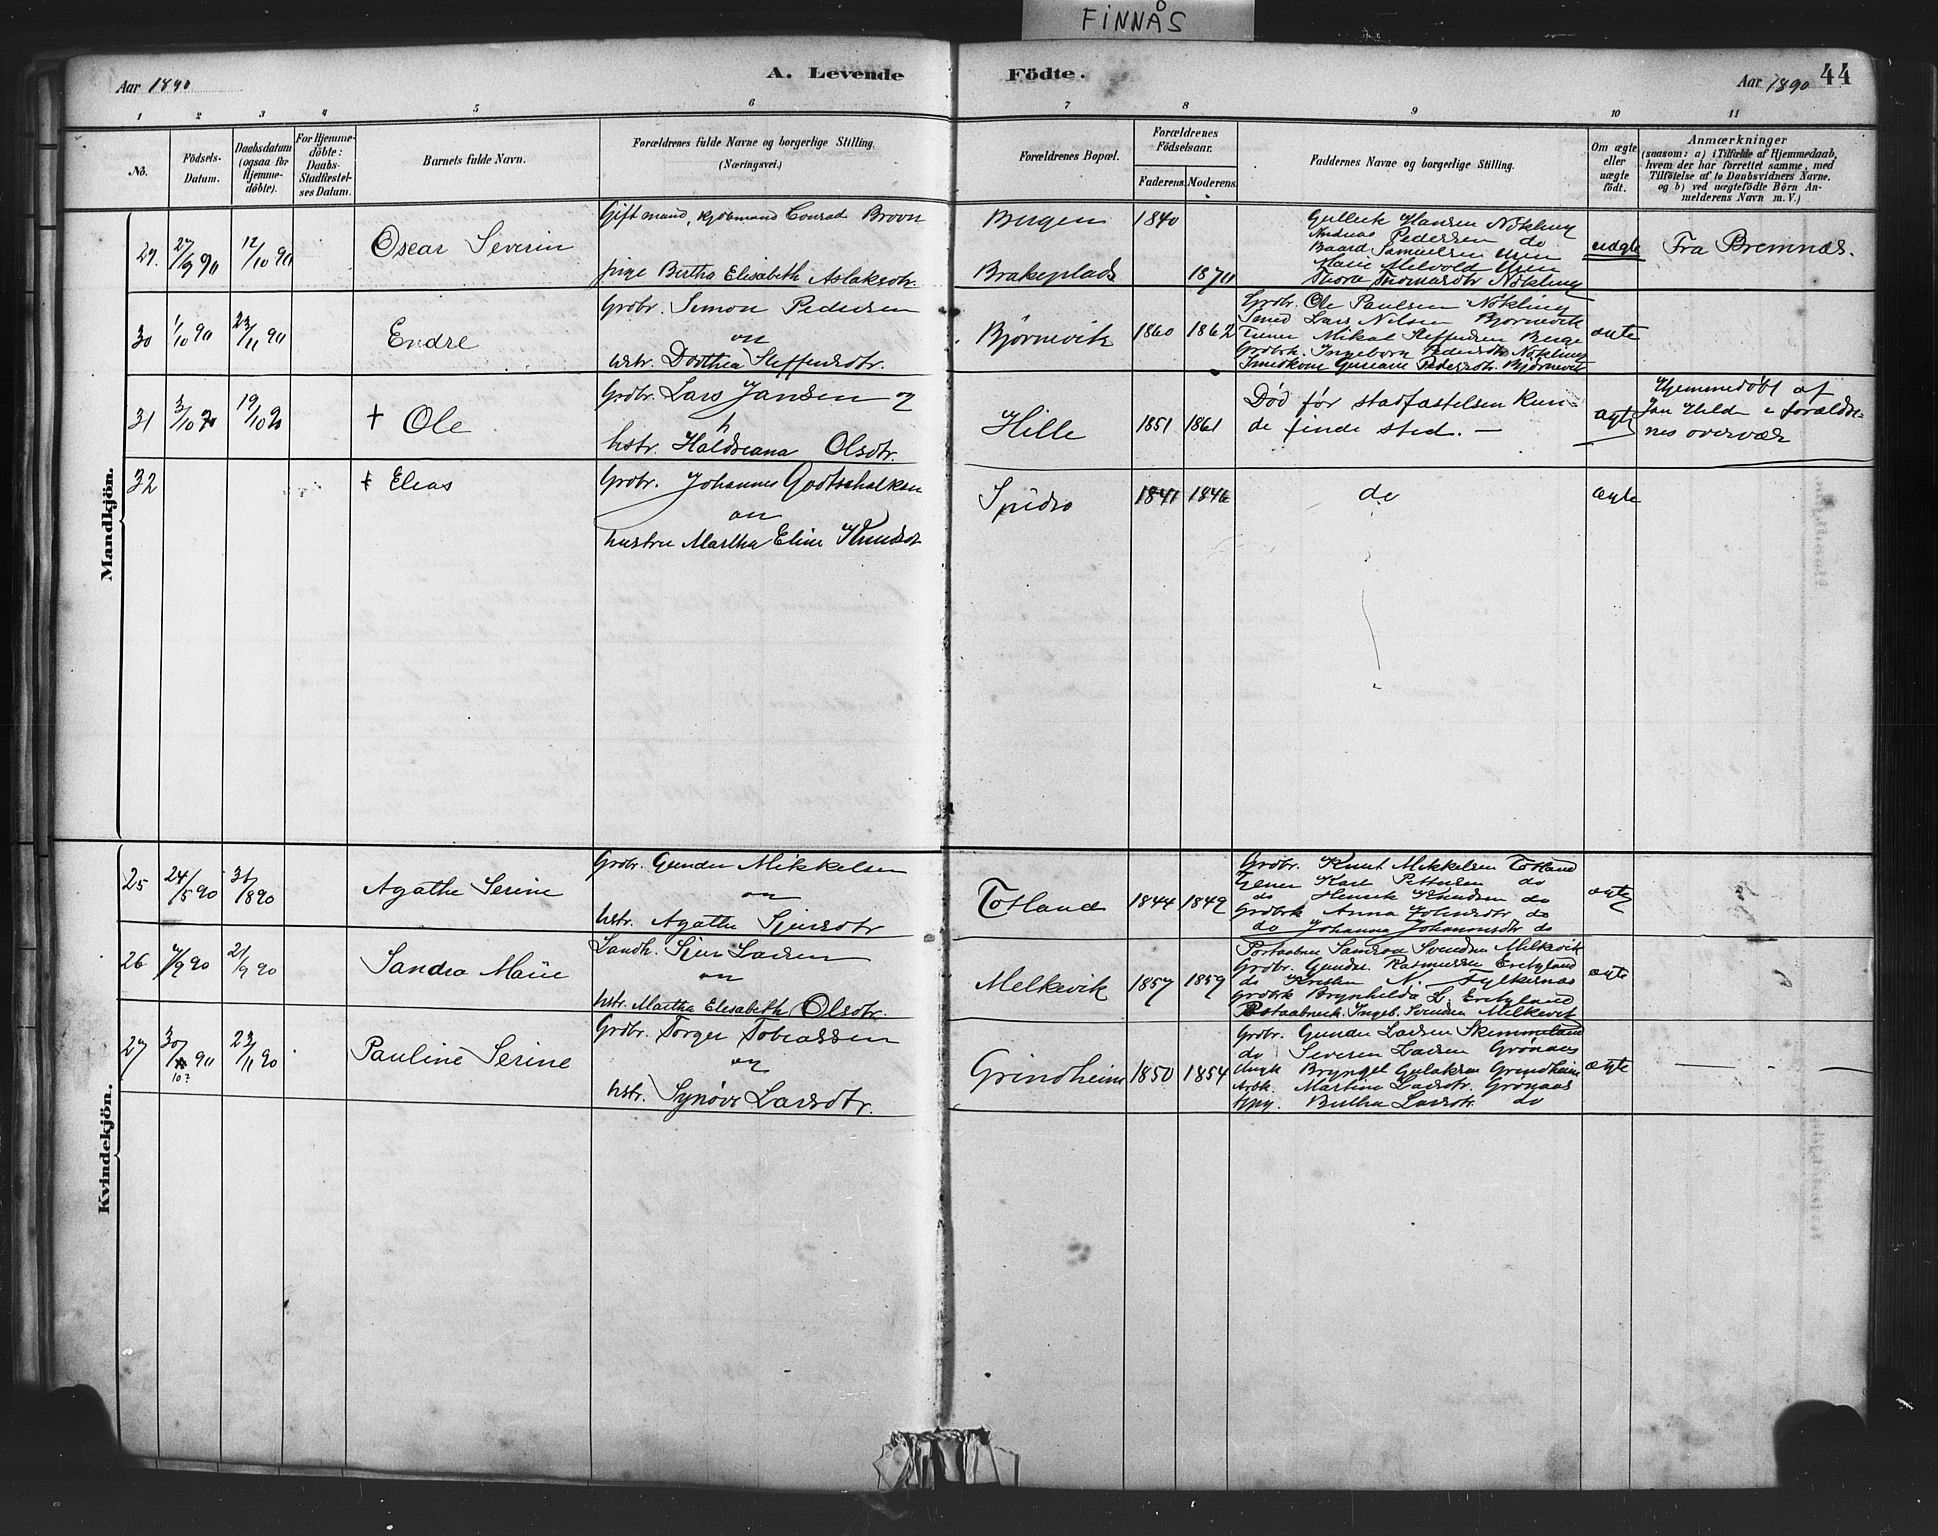 FINNÅS
Aar 1890
A. Levende
Födte.
Aar 1890
44
1 2 3 4 5 6 7 8 9 10 11
No.
Födsels-
Datum.
Daabsdatum
(ogsaa for
Hjemme-
döbte).
For Hjemme-
döbte:
Daabs-
Stadfæstel-
ses Datum.
Barnets fulde Navn.
Forældrenes fulde Navne og borgerlige Stilling.
(Næringsvei.)
Forældrenes Bopæl.
Forældrenes
Födselsaar.
Faderens. Moderens.
Faddernes Navne og borgerlige Stilling.
Om ægte
eller
uægte
födt.
Anmærkninger
(saasom: a) i Tilfælde af Hjemmedaab,
hvem der har forrettet samme, med
Tilföielse af to Daabsvidners Navne,
og b) ved uægtefödte Börn An-
melderens Navn m.V.)
Mandkjön.
29. 27/9 90 12/10 90 Oscar Severin
Gift mand, kjöbmand Conrad Bruun
pige Bertha Elisabeth Aslaksdtr.
Bergen 1840
Brakeplads 1870
Gullick Hansen Nökling
Andreas Pedersen do
Baard Samuelsen Uren
Marie Uren
Thora Thomasdtr Nökling
uægte
Fra Bremnæs.
30 1/10 90 23/11 90 Endre
Grdbr. Simon Pedersen
og
hstr. Dorthea Steffensdtr.
Bjørnevik 1860 1862
Grdbr. Ole Paulsen Nökling
Lars Nilsen Bjørnevik
Tjener Mikal Steffensen Berge
Grdbrk. Ingeborg Pedersdtr Nökling
Smedkone Gusiane Pedersdtr. Bjørnevik
ægte
31 3/10 90 19/10 90 † Ole
Grdbr. Lars Jansen og
hstr. Haldseana Olsdtr.
Hille 1851 1861
Död før stadfæstelsen kun-
de finde sted. —
ægte
Hjemmedøbt af
Jan Hilde i foreldre-
nes overvær
32 † Elias
Grdbr. Johannes Godtschalksen
og
hustru Martha Eline Knudsdt
1841 1846
do
ægte
Kvindekjön.
25 24/5 90 31/8 90 Agathe Serine
Grdbr. Gunder Mikkelsen
og
hstr. Agathe Sjursdtr
Totland 1844 1849
Grdbr. Knut Mikkelsen Totland
Tjener Karl Pettersen do
do Henrik Knudsen do
Grdbrk Anna Johnsdtr do
do Johanna Johannesdtr do
ægte
26 7/9 90 21/9 90 Sandra Marie
Landh. Sjur Larsen
og
hstr. Martha Elisabeth Olsdtr.
Melkevik 1857 1859
Postaabner Samson Svendsen Melkevik
Grdbr. Gunder Rasmussen Erikjland
do Kristen N. Fylkesnæs
Grdbrk Brynhilda L. Erikjland
Postaabnersk. Ingeb. Svendsen Melkevik
ægte
27 30/ 90 23/11 90 Pauline Serine
10?
Grdbr. Torger Tobiassen
og
hstr. Synøve Larsdtr.
Grindheim 1850 1854
Grdbr. Gunder Larsen Skimmeland
do Severin Larsen Grønaas
Ungk Bryngel Gulaksen Grindheim
Arbk. Martine Larsdtr. Grønaas
Pige. Bertha Larsdtr. do
ægte